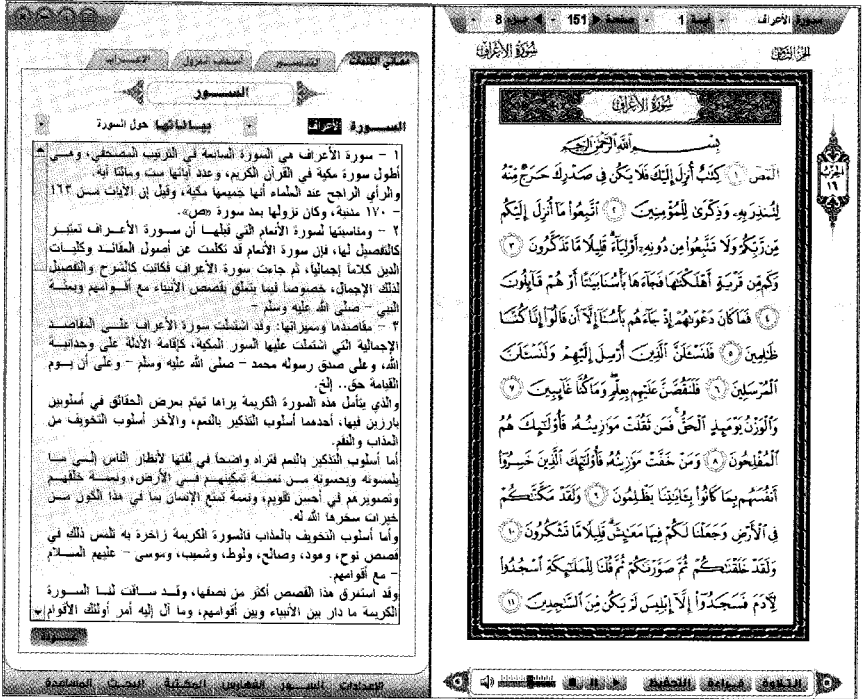 سورة الأعراف - آية 1 - صفحة 151 - جزء 8
الجزء الثامن
سورة الأعراف
سورة الأعراف
بسم الله الرحمن الرحيم
المص ١ كتب أنزل إليك فلا يكن في صدرك حرج منه
لتنذر به وذكرى للمؤمنين ٢ اتبعوا ما أنزل إليكم
من ربكم ولا تتبعوا من دونه أولياء قليلا ما تذكرون ٣
وكم من قرية أهلكنها فجاءها بأسنا بيتا أو هم قائلون
٤ فما كان دعوىهم إذ جاءهم بأسنا إلا أن قالوا إنا كنا
ظلمين ٥ فلنسئلن الذين أرسل إليهم ولنسئلن
المرسلين ٦ فلنقصن عليهم بعلم وما كنا غائبين ٧
والوزن يومئذ الحق فمن ثقلت موزينه فأولئك هم
المفلحون ٨ ومن خفت موزينه فأولئك الذين خسروا
أنفسهم بما كانوا بآيتنا يظلمون ٩ ولقد مكنكم
في الأرض وجعلنا لكم فيها معيش قليلا ما تشكرون ١٠
ولقد خلقنكم ثم صورنكم ثم قلنا للملئكة اسجدوا
لآدم فسجدوا إلا إبليس لم يكن من السجدين ١١
الحزب
١٦
التلاوة قراءة التحفيظ
معاني الكلمات
التفسير
أسباب النزول
الإعراب
الســور
الســورة الأعراف بيـاناتها حول السورة
١ - سورة الأعراف هي السورة السابعة في الترتيب المصحفي، وهــي
أطول سورة مكية في القرآن الكريم، وعدد آياتها ست ومائتا آية.
والرأي الراجح عند العلماء أنها جميعها مكية، وقيل إن الآيات مــن ١٦٣
- ١٧٠ مدنية، وكان نزولها بعد سورة «ص».
٢ - ومناسبتها لسورة الأنعام التي قبلهــا أن ســورة الأعــراف تعتبــر
كالتفصيل لها، فإن سورة الأنعام قد تكلمت عن أصول العقائد وكليــات
الدين كلاما إجماليا، ثم جاءت سورة الأعراف فكانت كالشرح والتفصيل
لذلك الإجمال، خصوصا فيما يتعلق بقصص الأنبياء مع أقــوامهم وبعثــة
النبي - صلى الله عليه وسلم -
٣ - مقاصدها ومميزاتها: وقد اشتملت سورة الأعراف علــى المقاصــد
الإجمالية التي اشتملت عليها السور المكية، كإقامة الأدلة على وحدانيــة
الله، وعلى صدق رسوله محمد - صلى الله عليه وسلم - وعلى أن يــوم
القيامة حق.. إلخ.
والذي يتأمل هذه السورة الكريمة يراها تهتم بعرض الحقائق في أسلوبين
بارزين فيها، أحدهما أسلوب التذكير بالنعم، والآخر أسلوب التخويف من
العذاب والنقم.
أما أسلوب التذكير بالنعم فتراه واضحا في لفتها لأنظار الناس إلــى مــا
يلمسونه ويحسونه مــن نعمــة تمكينهــم فــي الأرض، ونعمــة خلقهــم
وتصويرهم في أحسن تقويم، ونعمة تمتع الإنسان بما في هذا الكون مــن
خيرات سخرها الله له.
وأما أسلوب التخويف بالعذاب فالسورة الكريمة زاخرة به تلمس ذلك في
قصص نوح، وهود، وصالح، ولوط، وشعيب، وموسى - عليهم الســلام
- مع أقوامهم.
وقد استغرق هذا القصص أكثر من نصفها، وقــد ساقت لنــا الســورة
الكريمة ما دار بين الأنبياء وبين أقوامهم، وما آل إليه أمر أولئك الأقوام
الإعدادات الســور الفهارس المكتبة البحث المساعدة